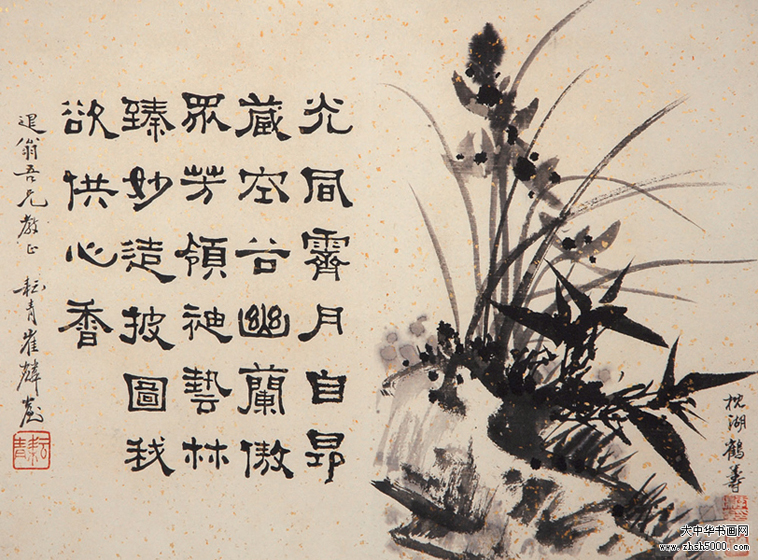 光同霽月自昂
藏空谷幽蘭傲
眾芳領袖藝林
臻妙造披圖我
欲供心香
退翁吾兄教正 耘青崔麟
耘青
枕湖鶴壽
大中华书画网
www.zhsh5000.com